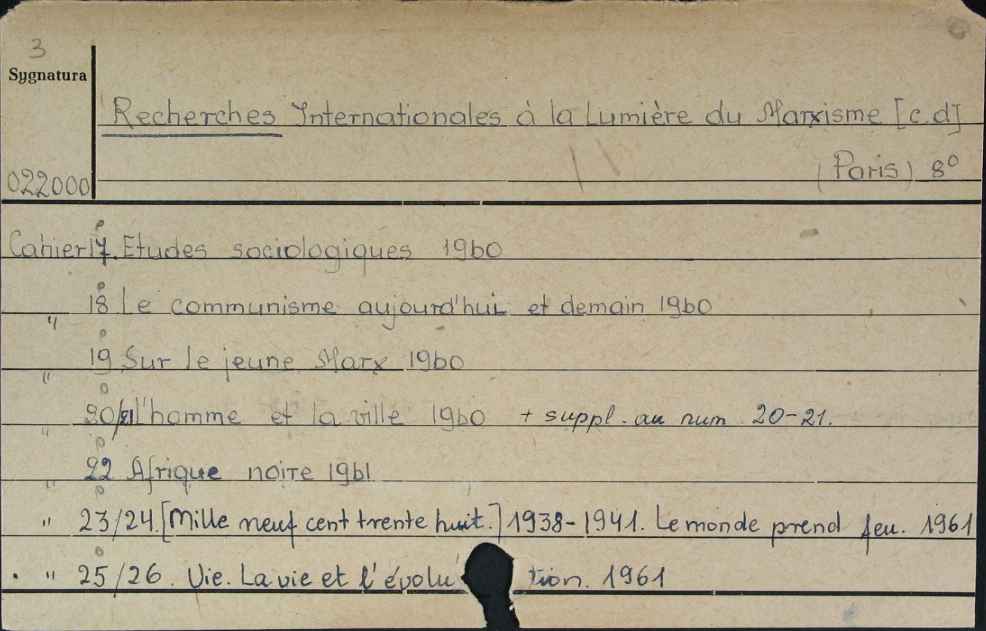 3
Sygnatura
Recherches Internationales à la Lumière du Marxisme [c.d]
022000
(Paris) 8°
Cahier 17. Etudes sociologiques 1960
" 18 Le communisme aujourd'hui et demain 1960
" 19 Sur le jeune Marx 1960
" 20/21 l'homme et la ville 1960 + suppl. au num 20-21.
" 22 Afrique noire 1961
" 23/24. [Mille neuf cent trente huit.] 1938-1941. Le monde prend feu. 1961
" 25/26. Vie. La vie et l'évolution. 1961